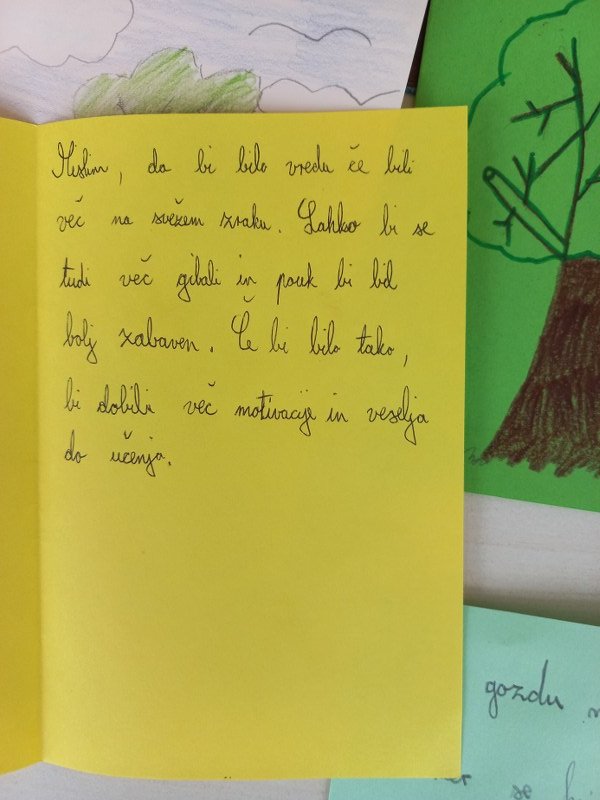 Mislim, da bi bilo vredu če bili
več na svežem zraku. Lahko bi se
tudi več gibali in pouk bi bil
bolj zabaven. Če bi bilo tako,
bi dobili več motivacije in veselja
do učenja.
gozdu
se